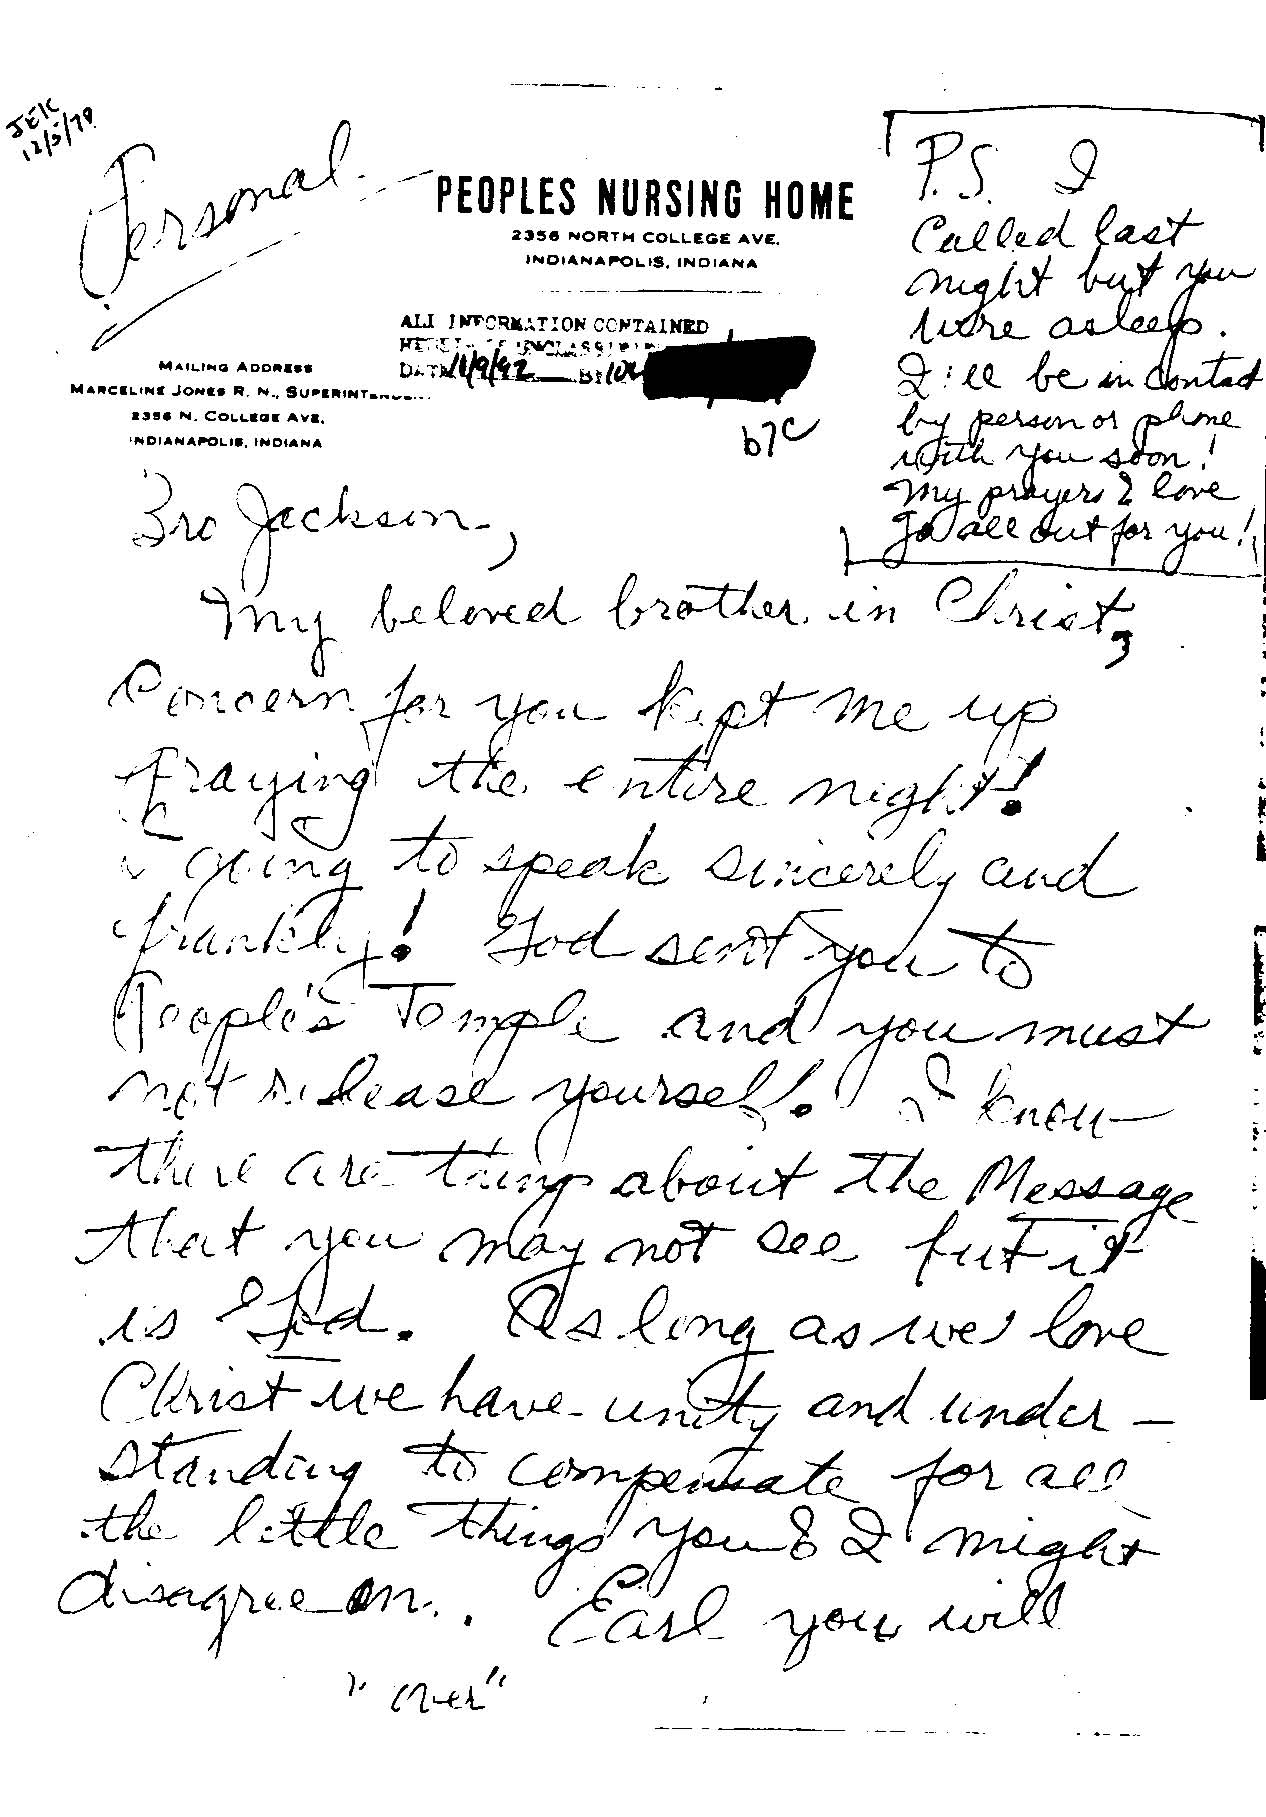 JEK
12/5/78
Personal -
PEOPLES NURSING HOME
2356 NORTH COLLEGE AVE.
INDIANAPOLIS, INDIANA
ALL INFORMATION CONTAINED
HEREIN IS UNCLASSIFIED
DATE 11/9/92 BY
b7C
MAILING ADDRESS
MARCELINE JONES R. N., SUPERINTENDENT
2356 N. COLLEGE AVE.
INDIANAPOLIS, INDIANA
P.S. I
Called last
night but you
were asleep.
I'll be in contact
by person or phone
with you soon!
My prayers & love
go all out for you!
Bro Jackson,
My beloved brother in Christ,
Concern for you kept me up
praying the entire night!
going to speak sincerely and
frankly! God sent you to
People's Temple and you must
not release yourself. I know
there are things about the Message
that you may not see but it
is God. As long as we love
Christ we have unity and under-
standing to compensate for all
the little things you & I might
disagree on. . Earl you will
"over"